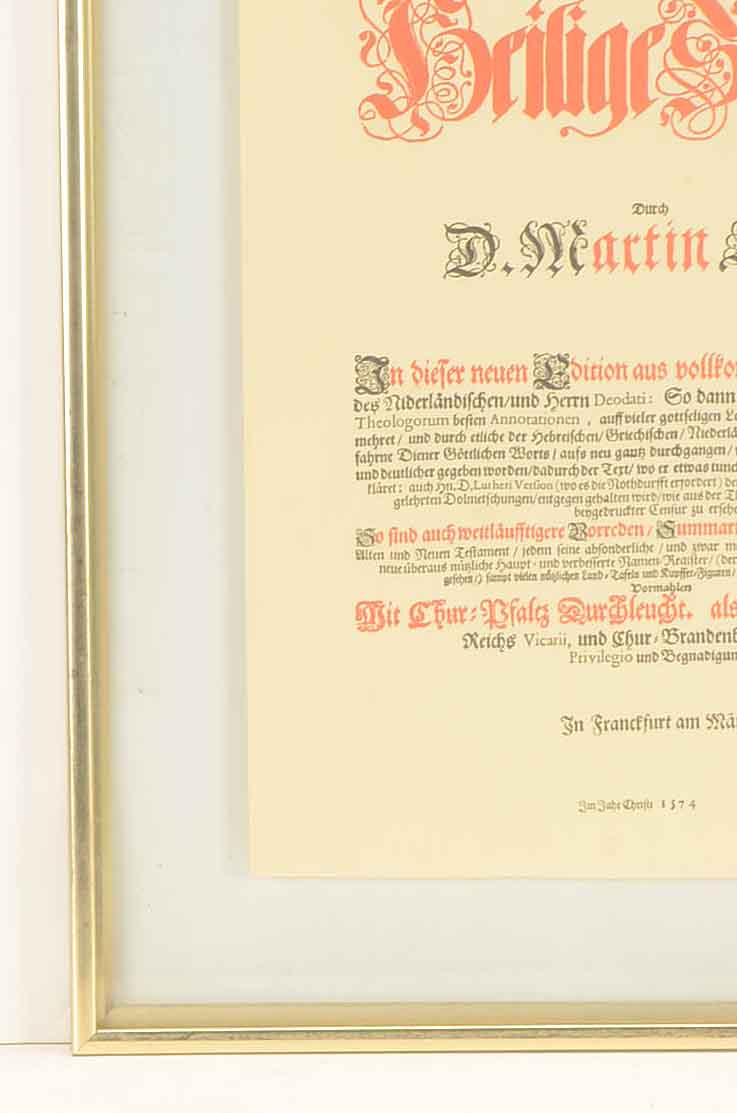 Heilige S
Durch
D. Martin
In dieser neuen Edition aus vollko
des Niderländischen/und Herrn Deodati: So dann
Theologorum besten Annotationen, auff vieler gottseligen Le
mehret/ und durch etliche der Hebreischen/Griechischen/Niederlä
fahrne Diener Göttlichen Worts/ aufs neu gantz durchgangen/
und deutlicher gegeben worden/dadurch der Text/ wo er etwas tunc
kläret: auch Hn. D. Lutheri Version (wo es die Nothdurfft erfordert) de
gelehrten Dolmetschungen/entgegen gehalten wird/wie aus der Th
beygedruckter Censur zu ersehe
So sind auch weitläufftigere Vorreden/ Summari
Alten und Neuen Testament/ jedem seine absonderliche/ und zwar m
neue überaus nützliche Haupt- und verbesserte Namen-Register/ (der
gesehen/) sampt vielen nützlichen Land-Tafeln und Kupffer-Figuren/
Vormahlen
Mit Chur-Pfaltz Durchleucht. als
Reichs Vicarii, und Chur-Brandenb
Privilegio und Begnadigun
In Franckfurt am Mä
Im Jahr Christi 1574